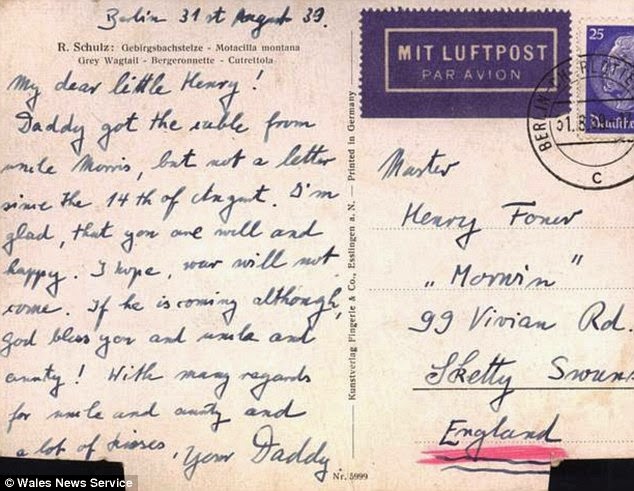 Berlin 31st August 39.
R. Schulz: Gebirgsbachstelze - Motacilla montana
Grey Wagtail - Bergeronnette - Cutrettola
My dear little Henry!
Daddy got the cable from
uncle Morris, but not a letter
since the 14th of August. I'm
glad, that you are well and
happy. I hope, war will not
come. If he is coming although,
God bless you and uncle and
aunty! With many regards
for uncle and aunty and
a lot of kisses, your Daddy
Kunstverlag Fingerle & Co., Esslingen a. N. — Printed in Germany
Nr. 5999
MIT LUFTPOST
PAR AVION
25
Deutsches
BERLIN
C
Master
Henry Foner
„Morwin"
99 Vivian Rd.
Sketty Swans
England
© Wales News Service